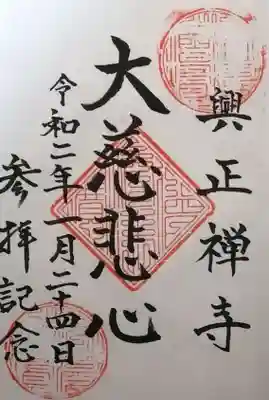 興正禅寺
大慈悲心
令和二年一月二十四日
参拝記念